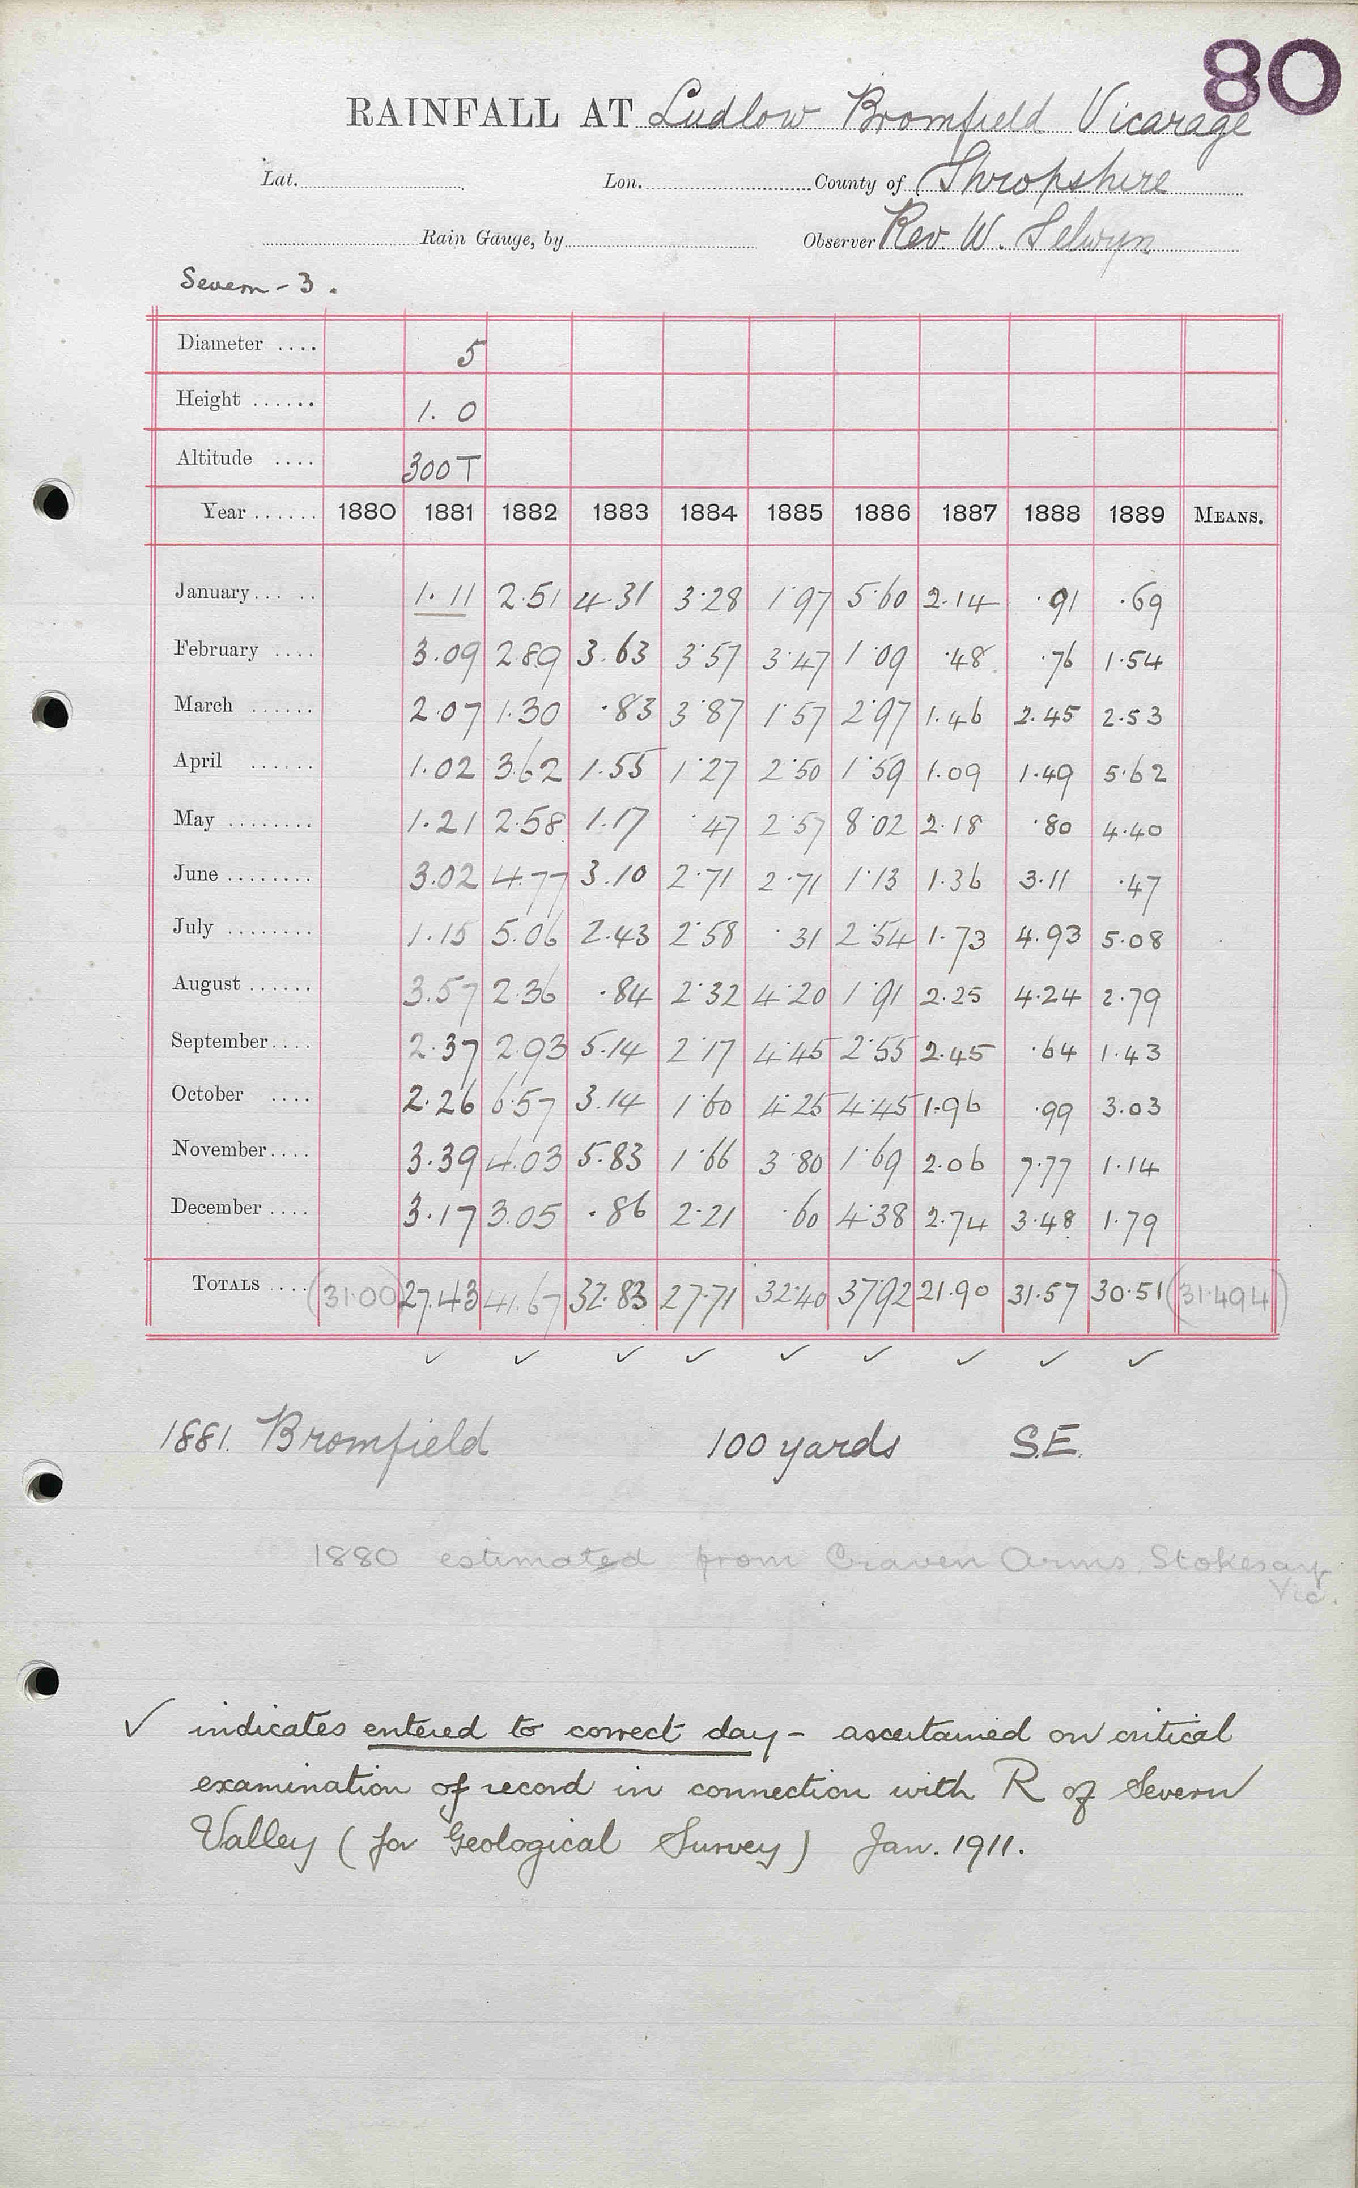 80
RAINFALL AT Ludlow Bromfield Vicarage
Lat. Lon. County of Shropshire
Rain Gauge, by Observer Rev. W. Selwyn
Severn - 3.
Diameter .... 5
Height ...... 1. 0
Altitude .... 300 T
Year ...... 1880 1881 1882 1883 1884 1885 1886 1887 1888 1889 MEANS.
January... .. 1.11 2.51 4.31 3.28 1.97 5.60 2.14 .91 .69
February .... 3.09 2.89 3.63 3.57 3.47 1.09 .48 .76 1.54
March ...... 2.07 1.30 .83 3.87 1.57 2.97 1.46 2.45 2.53
April ...... 1.02 3.62 1.55 1.27 2.50 1.59 1.09 1.49 5.62
May ........ 1.21 2.58 1.17 .47 2.57 8.02 2.18 .80 4.40
June ........ 3.02 4.77 3.10 2.71 2.71 1.13 1.36 3.11 .47
July ........ 1.15 5.06 2.43 2.58 .31 2.54 1.73 4.93 5.08
August ...... 3.57 2.36 .84 2.32 4.20 1.91 2.25 4.24 2.79
September.... 2.37 2.93 5.14 2.17 4.45 2.55 2.45 .64 1.43
October .... 2.26 6.57 3.14 1.60 4.25 4.45 1.96 .99 3.03
November.... 3.39 4.03 5.83 1.66 3.80 1.69 2.06 7.77 1.14
December .... 3.17 3.05 .86 2.21 .60 4.38 2.74 3.48 1.79
TOTALS .... (31.00) 27.43 41.67 32.83 27.71 32.40 37.92 21.90 31.57 30.51 (31.494)
✓ ✓ ✓ ✓ ✓ ✓ ✓ ✓ ✓
1881. Bromfield 100 yards S.E.
1880 estimated from Craven Arms. Stokesay
Vic.
✓ indicates entered to correct day - ascertained on critical
examination of record in connection with R of Severn
Valley (for Geological Survey) Jan. 1911.